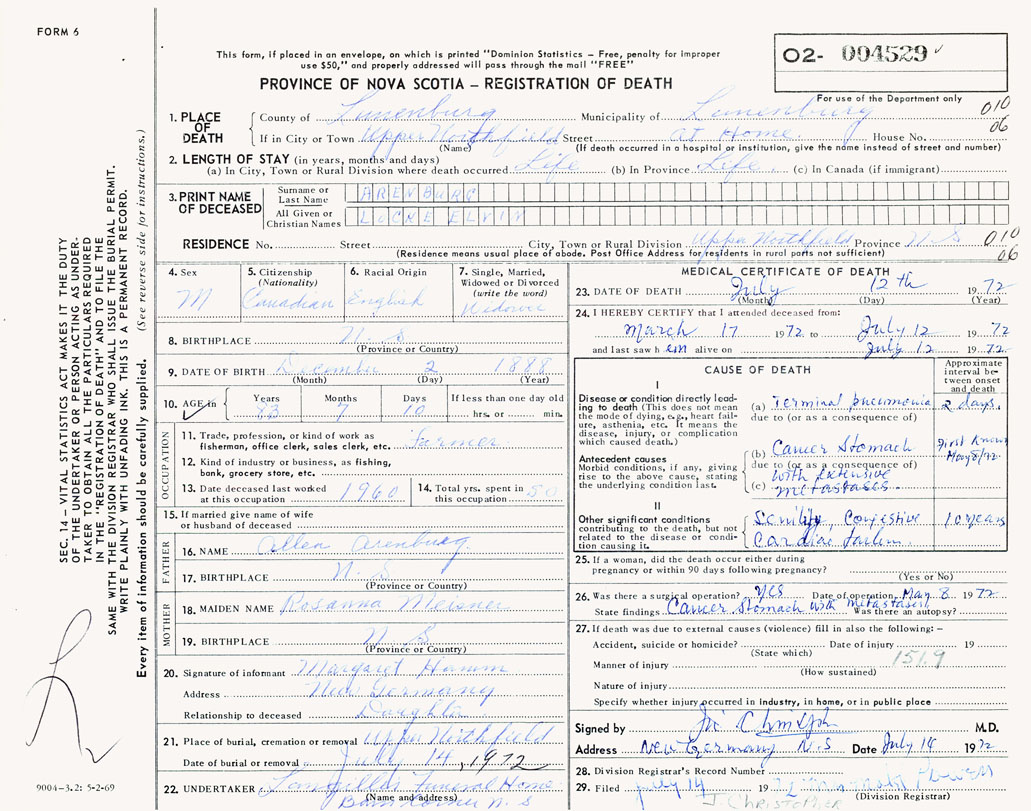 FORM 6
This form, if placed in an envelope, on which is printed "Dominion Statistics – Free, penalty for improper
use $50," and properly addressed will pass through the mail "FREE"
PROVINCE OF NOVA SCOTIA – REGISTRATION OF DEATH
O2- 004529
For use of the Department only
010
06
1. PLACE OF DEATH
County of Lunenburg Municipality of Lunenburg
If in City or Town Upper Northfield Street At Home. House No.
(Name) (If death occurred in a hospital or institution, give the name instead of street and number)
2. LENGTH OF STAY (in years, months and days)
(a) In City, Town or Rural Division where death occurred Life (b) In Province Life (c) In Canada (if immigrant)
3. PRINT NAME OF DECEASED
Surname or Last Name ARENBURG
All Given or Christian Names LOCKE ELVIN
RESIDENCE No. Street City, Town or Rural Division Upper Northfield Province N.S
010
06
(Residence means usual place of abode. Post Office Address for residents in rural parts not sufficient)
4. Sex
M
5. Citizenship
(Nationality)
Canadian
6. Racial Origin
English
7. Single, Married, Widowed or Divorced
(write the word)
Widower
8. BIRTHPLACE N. S
(Province or Country)
9. DATE OF BIRTH December 2 1888
(Month) (Day) (Year)
10. AGE in Years Months Days If less than one day old
83 7 10 hrs. or min.
OCCUPATION
11. Trade, profession, or kind of work as
fisherman, office clerk, sales clerk, etc. farmer
12. Kind of industry or business, as fishing,
bank, grocery store, etc.
13. Date deceased last worked
at this occupation 1960
14. Total yrs. spent in
this occupation 50
15. If married give name of wife
or husband of deceased
FATHER
16. NAME Allen Arenburg
17. BIRTHPLACE N. S
(Province or Country)
MOTHER
18. MAIDEN NAME Rosanna Meisner
19. BIRTHPLACE N S
(Province or Country)
20. Signature of informant Margaret Hamm
Address New Germany
Relationship to deceased Daughter
21. Place of burial, cremation or removal Upper Northfield
Date of burial or removal July 14, 1972
22. UNDERTAKER Funeral Home
(Name and address) N. S
MEDICAL CERTIFICATE OF DEATH
23. DATE OF DEATH July 12th 1972
(Month) (Day) (Year)
24. I HEREBY CERTIFY that I attended deceased from:
March 17 1972 to July 12 1972
and last saw h im alive on July 12 1972
CAUSE OF DEATH
Approximate interval between onset and death
I
Disease or condition directly leading to death (This does not mean the mode of dying, e.g., heart failure, asthenia, etc. It means the disease, injury, or complication which caused death.)
(a) Terminal pneumonia 2 days.
due to (or as a consequence of)
Antecedent causes
Morbid conditions, if any, giving rise to the above cause, stating the underlying condition last.
(b) Cancer Stomach First known May 8/72
due to (or as a consequence of)
(c) with extensive metastases
II
Other significant conditions
contributing to the death, but not related to the disease or condition causing it.
Senility, Congestive 10 years
Cardiac
25. If a woman, did the death occur either during
pregnancy or within 90 days following pregnancy?
(Yes or No)
26. Was there a surgical operation? YES Date of operation May 8 1972
State findings Cancer Stomach with Metastases Was there an autopsy?
27. If death was due to external causes (violence) fill in also the following: –
Accident, suicide or homicide? Date of injury 19
(State which) 151.9
Manner of injury
(How sustained)
Nature of injury
Specify whether injury occurred in industry, in home, or in public place
Signed by M.D.
Address New Germany N.S Date July 14 1972
28. Division Registrar's Record Number
29. Filed July 14 1972
(Division Registrar)
J. CHRISTOPHER
SEC. 14 – VITAL STATISTICS ACT MAKES IT THE DUTY
OF THE UNDERTAKER OR PERSON ACTING AS UNDER-
TAKER TO OBTAIN ALL THE PARTICULARS REQUIRED
IN THE "REGISTRATION OF DEATH" AND TO FILE THE
SAME WITH THE DIVISION REGISTRAR WHO SHALL ISSUE THE BURIAL PERMIT.
WRITE PLAINLY WITH UNFADING INK. THIS IS A PERMANENT RECORD.
Every item of information should be carefully supplied. (See reverse side for instructions.)
9004-3.2: 5-2-69